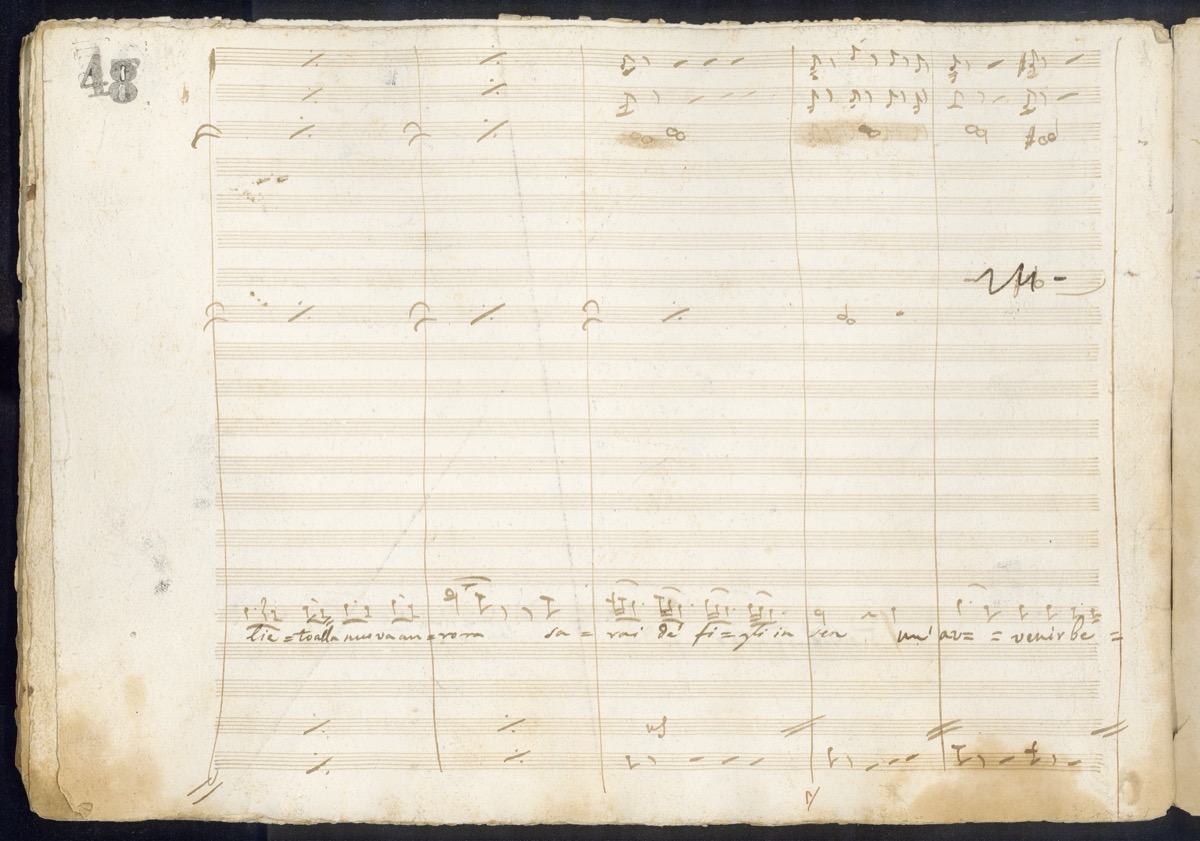 48
lie = to alla nuova au = rora sa = rai de' fi = gli in sen un' av = = venir be =